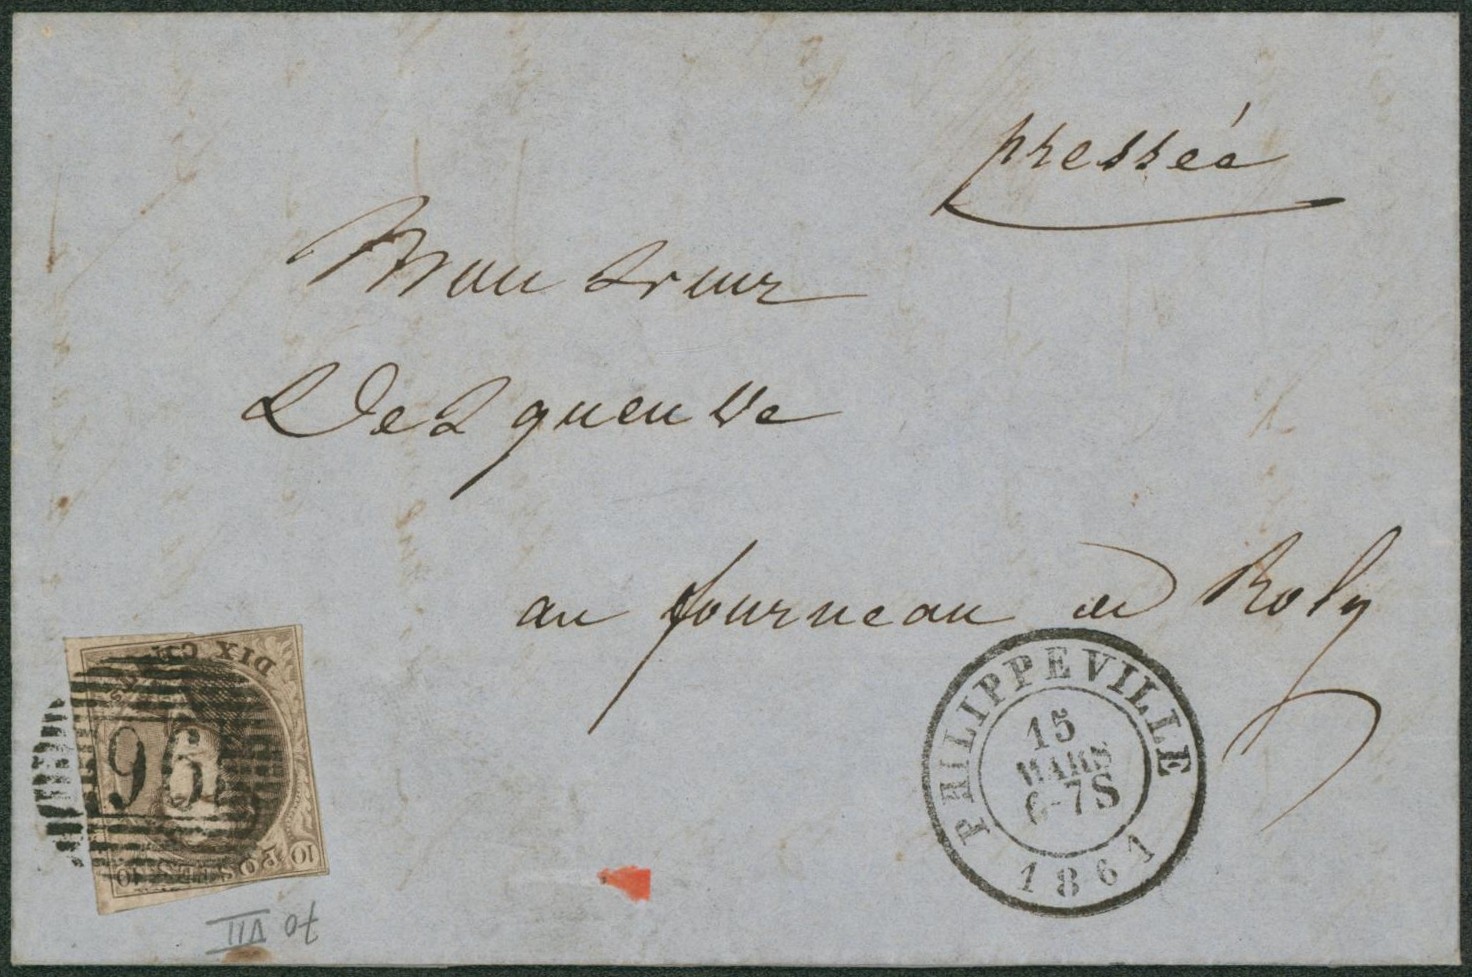 presséé
Monsieur
Desqueuve
au fourneau de Roly
PHILIPPEVILLE
15
MARS
6-7S
1861
DIX C
POSTES
10
10
96
70 VII